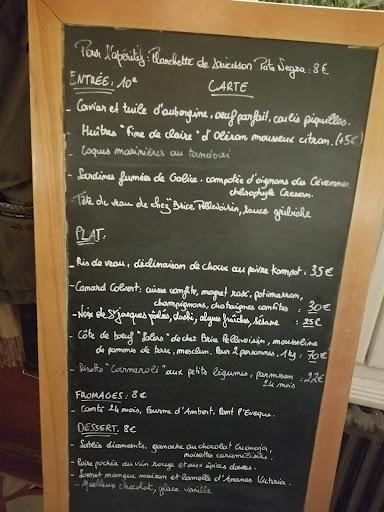 Pour l'apéritif : Planchette de saucisson Pata Negra : 8€
ENTRÉE : 10€
CARTE
- Caviar et tuile d'aubergine, oeuf parfait, coulis piquillos.
- Huîtres "fine de claire" d'Oléron mousseux citron. (+5€)
- Coques marinières au tandoori
- Sardines fumées de Galice. compotée d'oignons des Cévennes
chlorophyle Cresson.
- Tête de veau de chez Brice Pellevoisin, sauce gribiche
PLAT :
- Ris de veau, déclinaison de choux au poivre kampot : 35€
- Canard Colvert : cuisse confite, magret rosé, potimarron,
champignons, chataignes confites : 30€
- Noix de St jacques poêlées, dashi, algues fraîches, sésame : 25€
- Côte de boeuf de chez Brice Pellevoisin, mousseline
de pommes de terre, mesclun. Pour 2 personnes. 1kg : 70€
- Risotto "Carnaroli" aux petits légumes, parmesan
24 mois : 22€
FROMAGES : 8€
- Comté 24 mois, Fourme d'Ambert, Pont l'Eveque.
DESSERT. 8€
- Sablés diamants, ganache au chocolat Guanaja,
noisettes caramélisées.
- Poire pochée au vin rouge et aux épices douces.
- Sorbet mangue maison et lamelle d'Ananas Victoria.
- Moelleux chocolat, glace vanille